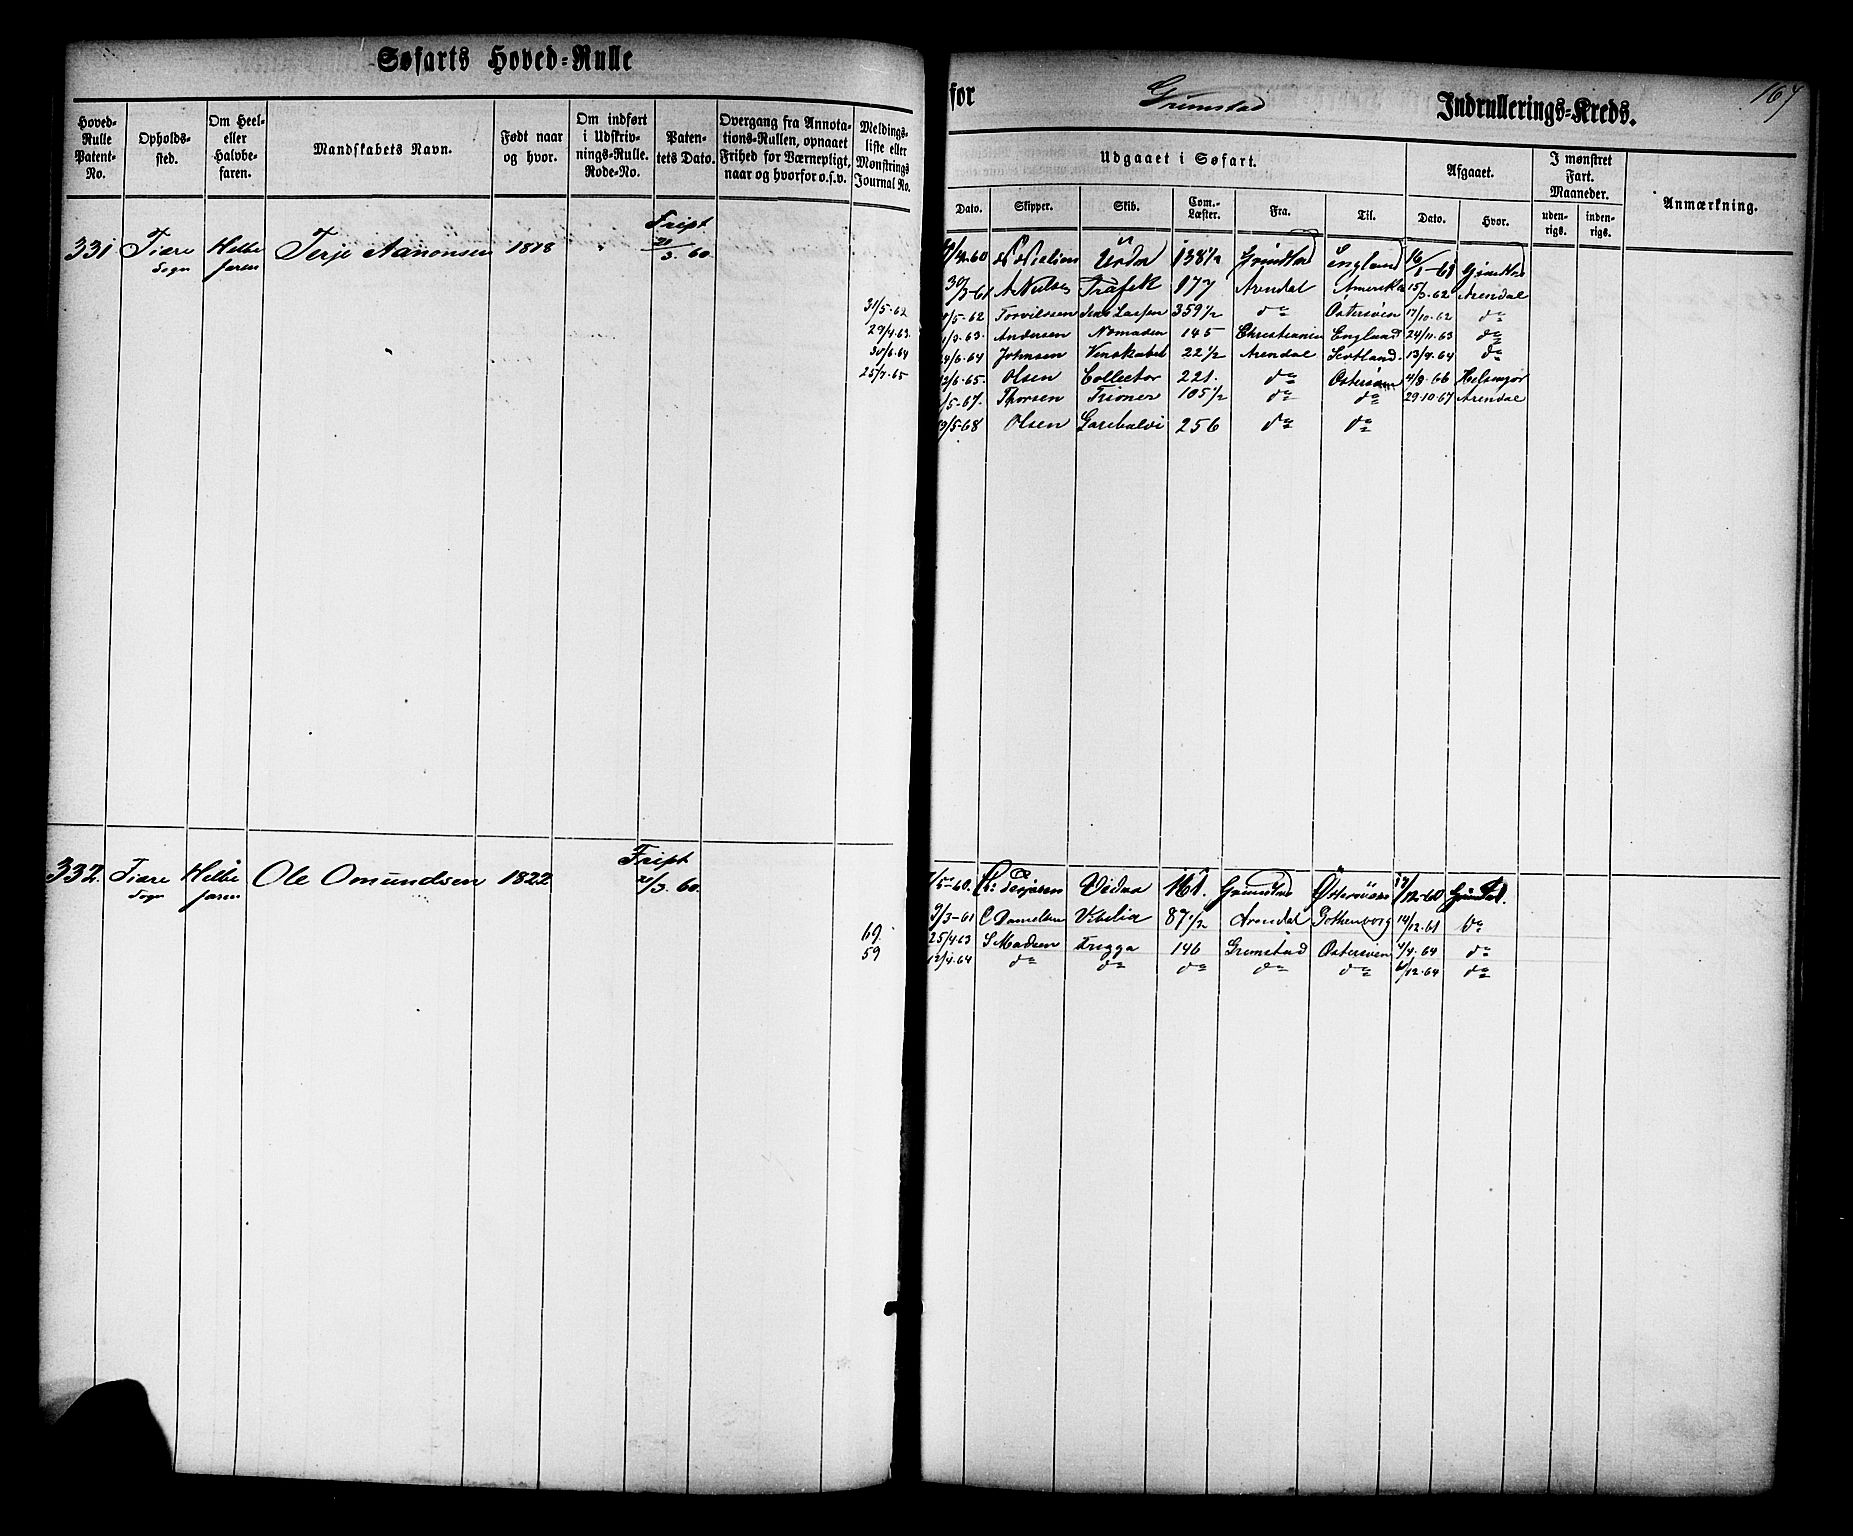 Søfarts Hoved-Rulle
for Grimstad Indrullerings-Kreds.
167
Hoved-Rulle Patent-No.
Opholds-sted.
Om Heel- eller Halvbe-faren.
Mandskabets Navn.
Født naar og hvor.
Om indført i Udskriv-nings-Rulle. Rode-No.
Paten-tets Dato.
Overgang fra Annota-tions-Rullen, opnaaet Frihed for Værnepligt, naar og hvorfor o.s.v.
Meldings-liste eller Mønstrings Journal No.
Udgaaet i Søfart.
Afgaaet.
I mønstret Fart. Maaneder.
Anmærkning.
Dato. Skipper. Skib. Com.-Læster. Fra. Til. Dato. Hvor. uden-rigs. inden-rigs.
331 Tiøre Sogn Helbefaren Terje Aanonsen 1818 Fript 21/3. 60.
60 N Nielsen Urda 138 1/2 Grimstad England 16/1-61 Grimstad
30/3-61 A Nielsen Trafik 177 Arendal Amerika 15/3. 62 Arendal
31/5-62 /5-62 Torvilssen 359 1/2 do Østersøen 17/10-62 do
29/4-63. 63. Andersen Nomaden 145 Christiania England 24/11-63 do
30/6-64 /6-64 Johnsen Venskabet 22 1/2 Arendal Scotland 13/7-64 do
25/7-65 12/6-65. Olsen Collector 221. do Østersøen 4/8-66 Helsingør
/5-67. Thorsen Trioner 105 1/2 do do 29-10-67 Arendal
/5-68 Olsen Garibaldi 256 do do
332. Tiøre Sogn Helbefaren Ole Omundsen 1822 Fript 21/3. 60.
/5-60. Terjesen Vidaa 161. Grimstad Østersøen /12-60 Grimstad.
9/3-61 C Danielsen Vibilia 87 1/2 Arendal Gothenborg 14/12-61 do
69 25/4 63 S Madsen Frigga 146 Grimstad Østersøen 4/4-64 do
59 12/4-64 do do do do do /12-64 do